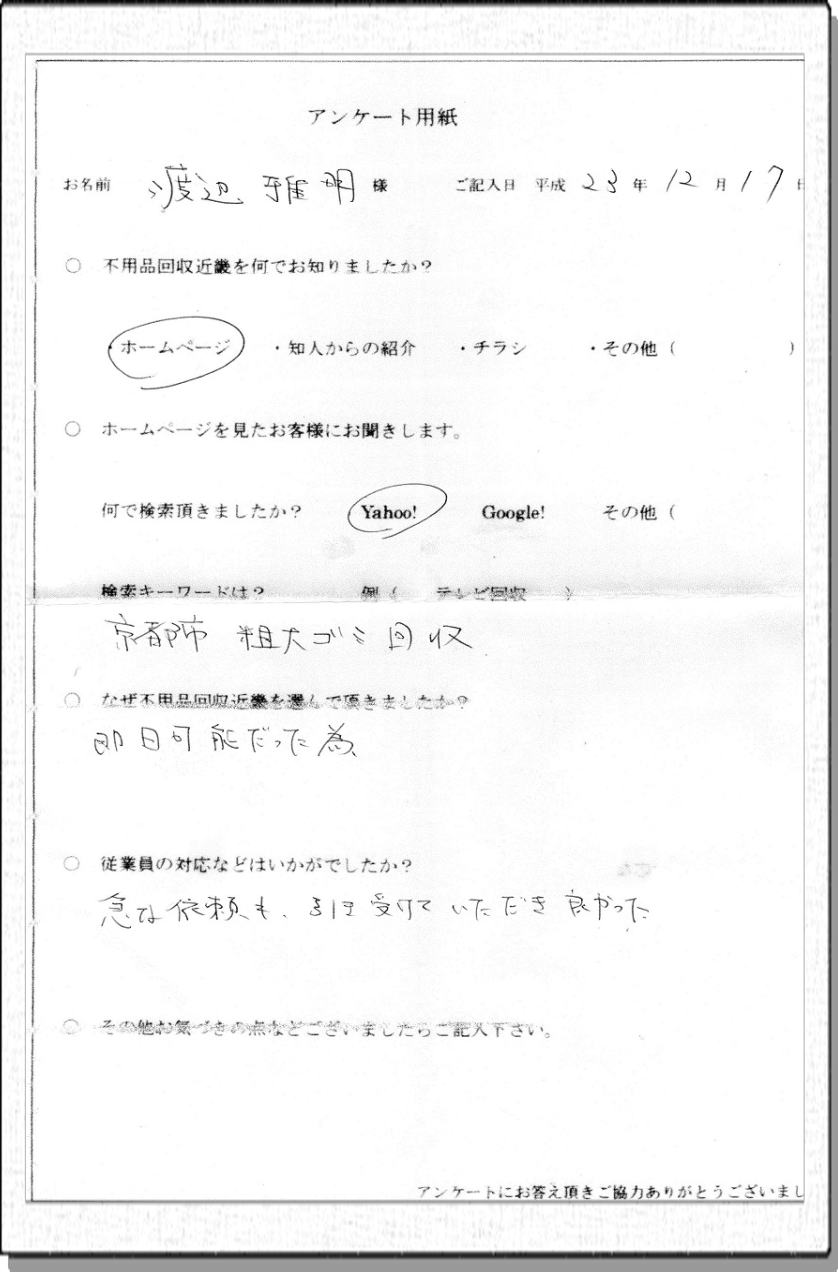 アンケート用紙
お名前 渡辺 雅明 様 ご記入日 平成 23 年 12 月 17 日
○ 不用品回収近畿を何でお知りましたか？
・ホームページ ・知人からの紹介 ・チラシ ・その他（ ）
○ ホームページを見たお客様にお聞きします。
何で検索頂きましたか？ Yahoo! Google! その他（
検索キーワードは？ 例（ テレビ回収 ）
京都市 粗大ゴミ回収
○ なぜ不用品回収近畿を選んで頂きましたか？
即日可能だった為、
○ 従業員の対応などはいかがでしたか？
急な依頼も、引き受けていただき良かった
○ その他お気づきの点などございましたらご記入下さい。
アンケートにお答え頂きご協力ありがとうございまし